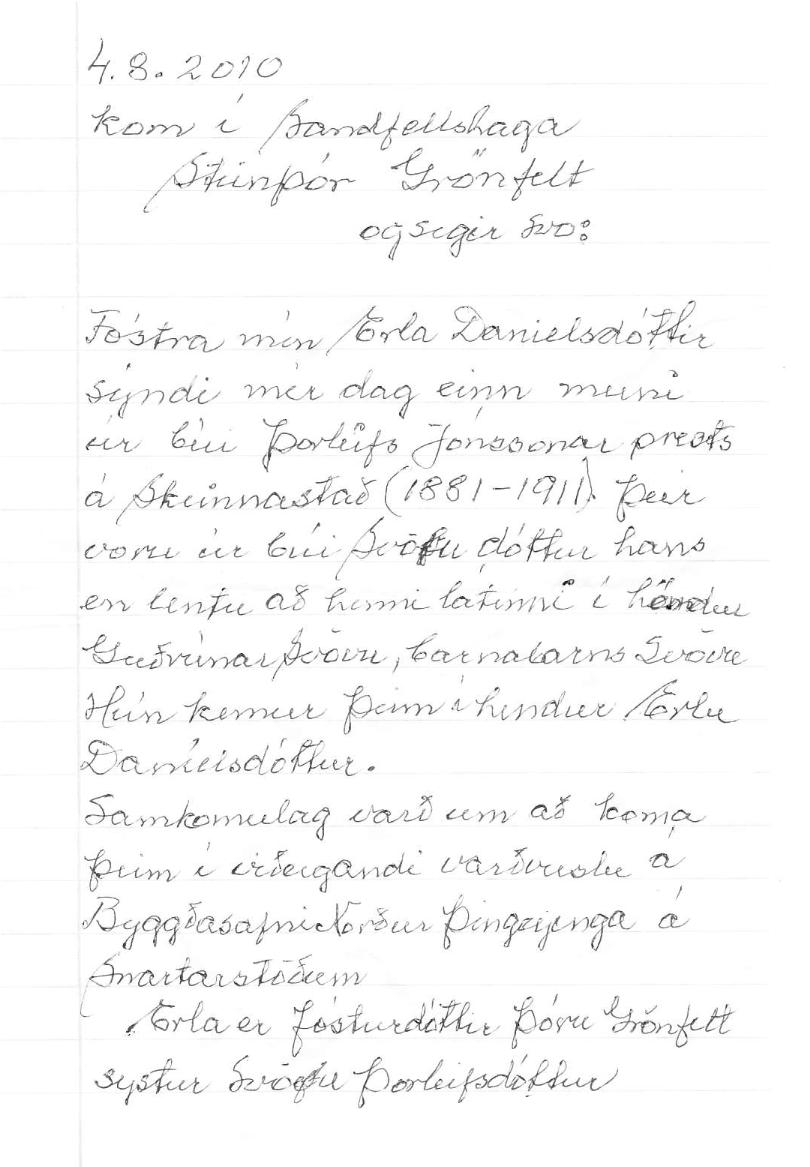 4.8. 2010
kom í Sandfellshaga
Steinþór Grönfelt
og segir svo:
Fóstra mín Erla Danielsdóttir
sýndi mér dag einn muni
úr búi Þorleifs Jónssonar prests
á Skinnastað (1881-1911). Þeir
voru úr búi Svöfu dóttur hans
en lentu að henni látinni í hendur
Guðrúnar Svövu, barnabarns Svövu
Hún kemur þeim í hendur Erlu
Daníelsdóttur.
Samkomulag varð um að koma
þeim í viðeigandi varðveislu á
Byggðasafni Norður Þingeyinga á
Snartarstöðum
Erla er fósturdóttir Þóru Grönfelt
systur Svöfu Þorleifsdóttur